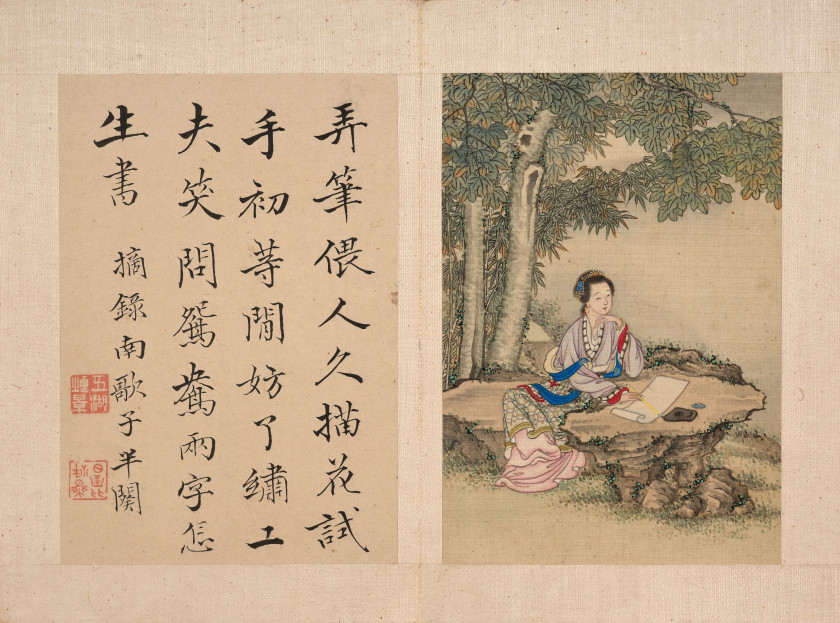 弄筆偎人久描花試
手初等閒妨了繡工
夫笑問鴛鴦兩字怎
生書
摘錄南歌子半闋
五湖